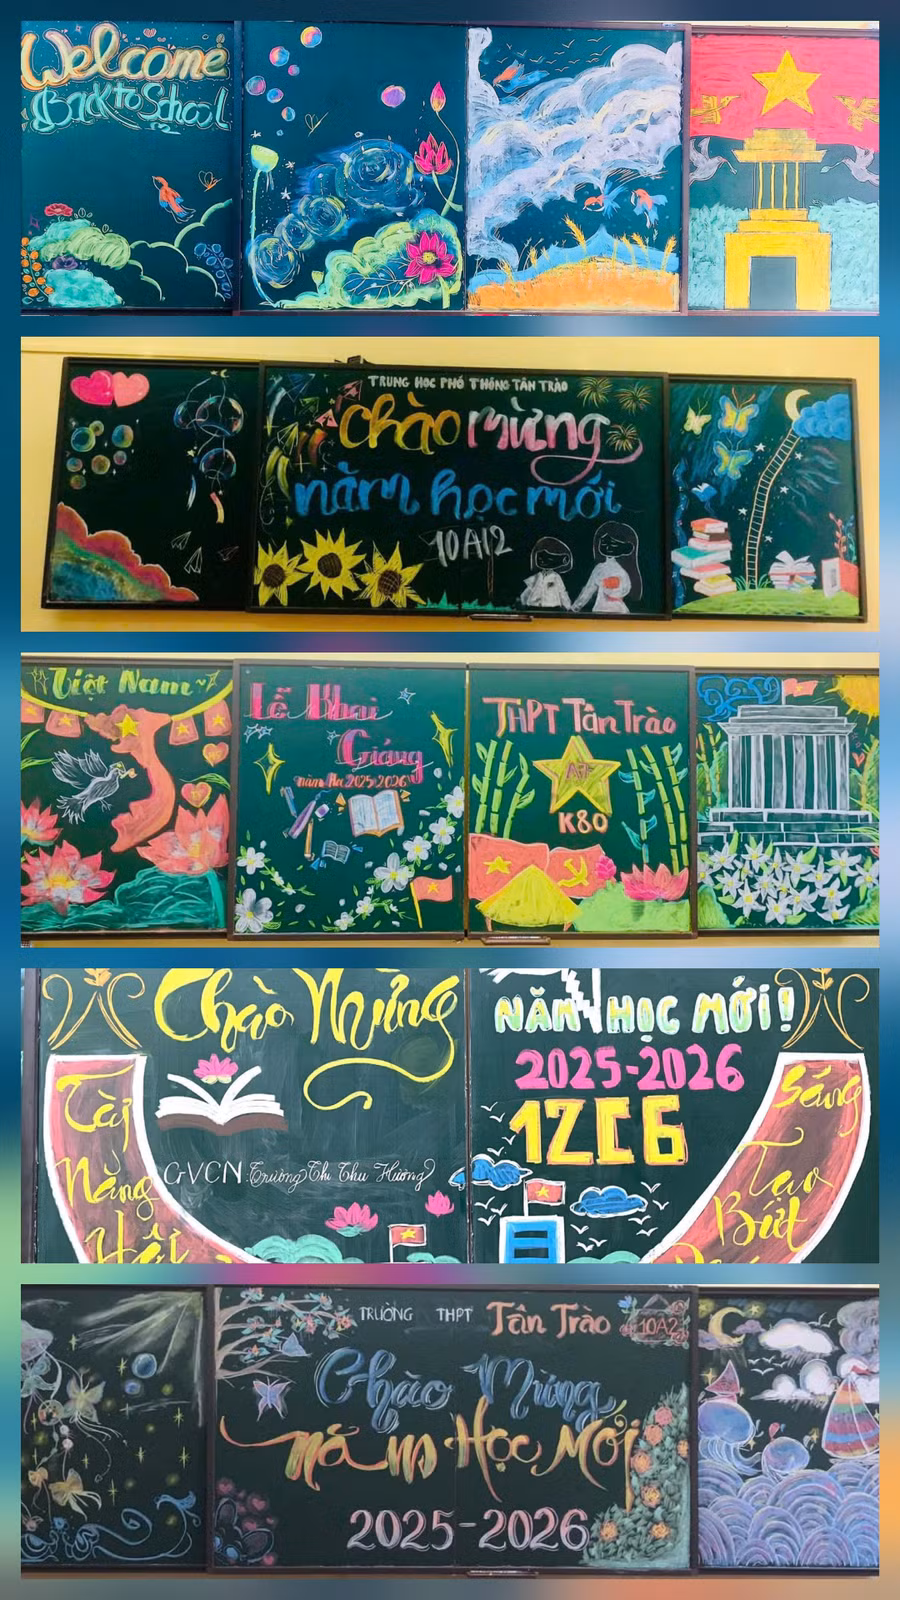 Welcome
Back to School
TRUNG HỌC PHỔ THÔNG TÂN TRÀO
Chào mừng
năm học mới
10A12
Việt Nam
Lễ Khai
Giảng
năm học 2025-2026
THPT Tân Trào
K80
Chào Mừng
NĂM HỌC MỚI!
2025-2026
12C6
GVCN: Trương Thị Thu Hường
Tài
Năng
Hội
Sáng
Tạo
Bứt
TRƯỜNG THPT Tân Trào
10A2
Chào Mừng
năm Học Mới
2025-2026